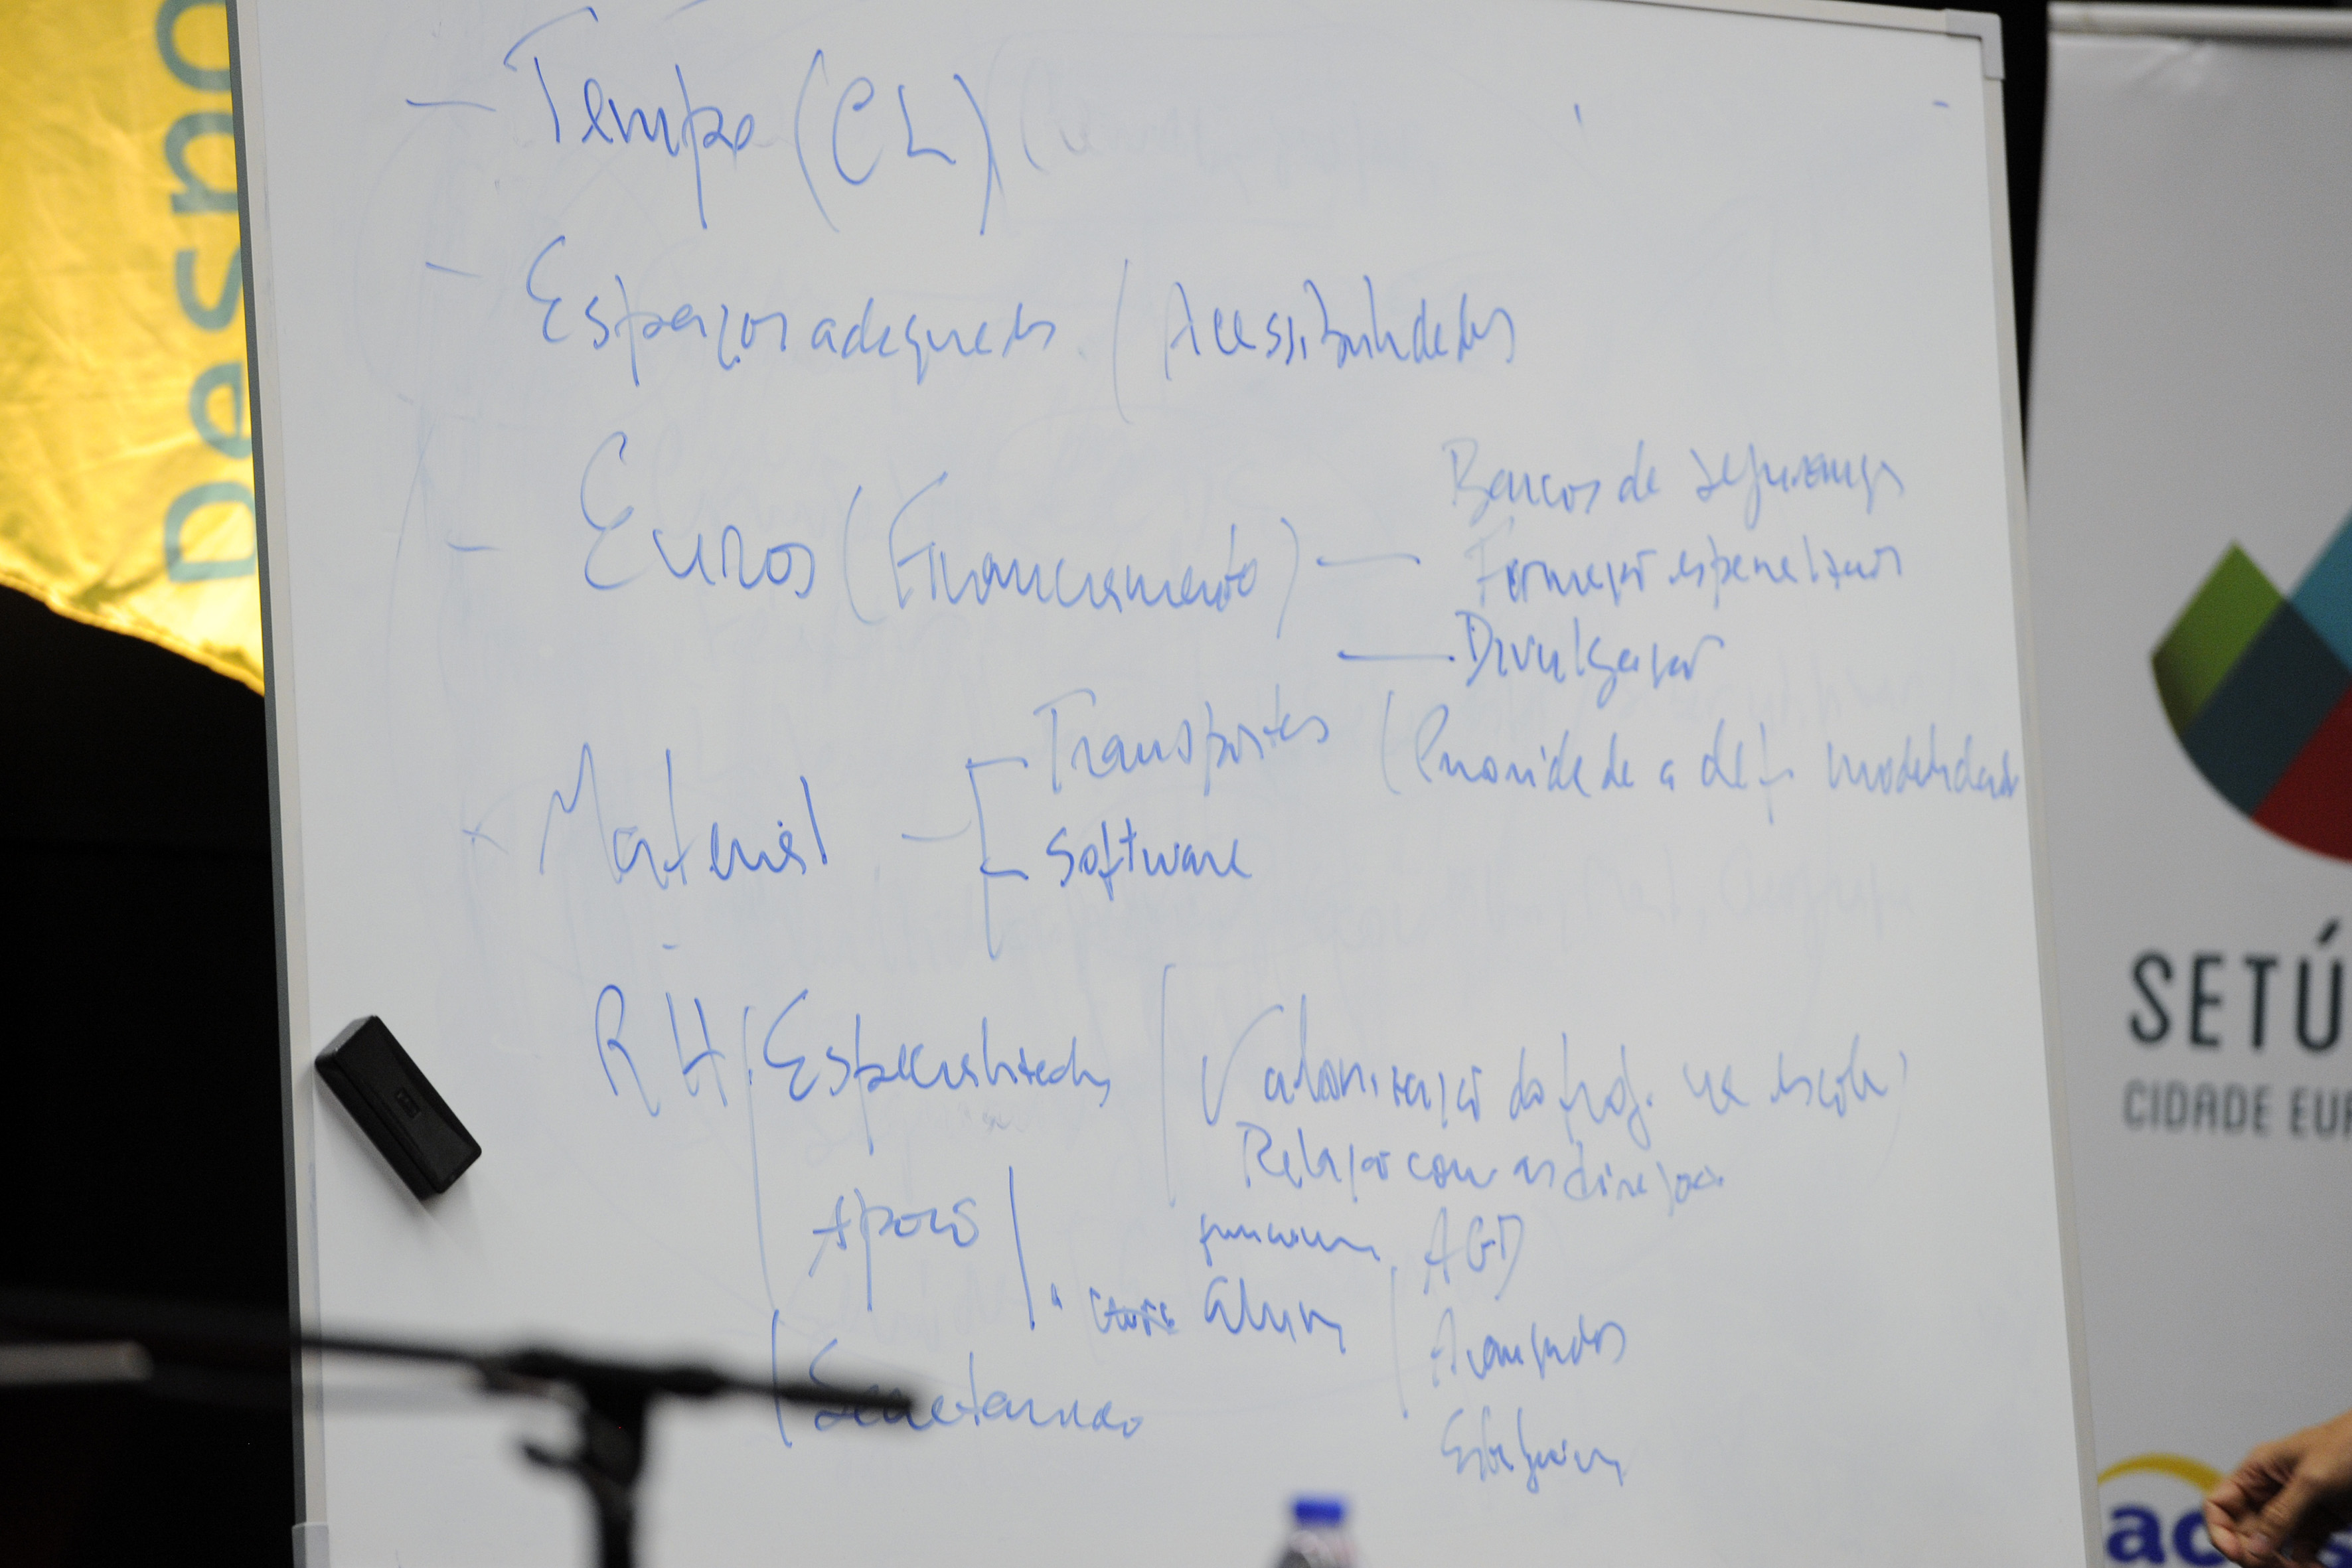 Despo
- Tempo (CL)
- Espaços adequados (Acessibilidades
- Euros (Financiamento) — Barcos de segurança
Formação especializada
— Divulgação
Material — Transportes (Prioridade a def. modalidades
Software
RH Especialistas (Valorização do proj. na escola)
Relação com as direções
Apoio
AGD
Alun
Avançados
Secretariado
Estagiários
SETÚ
CIDADE EUR
ac